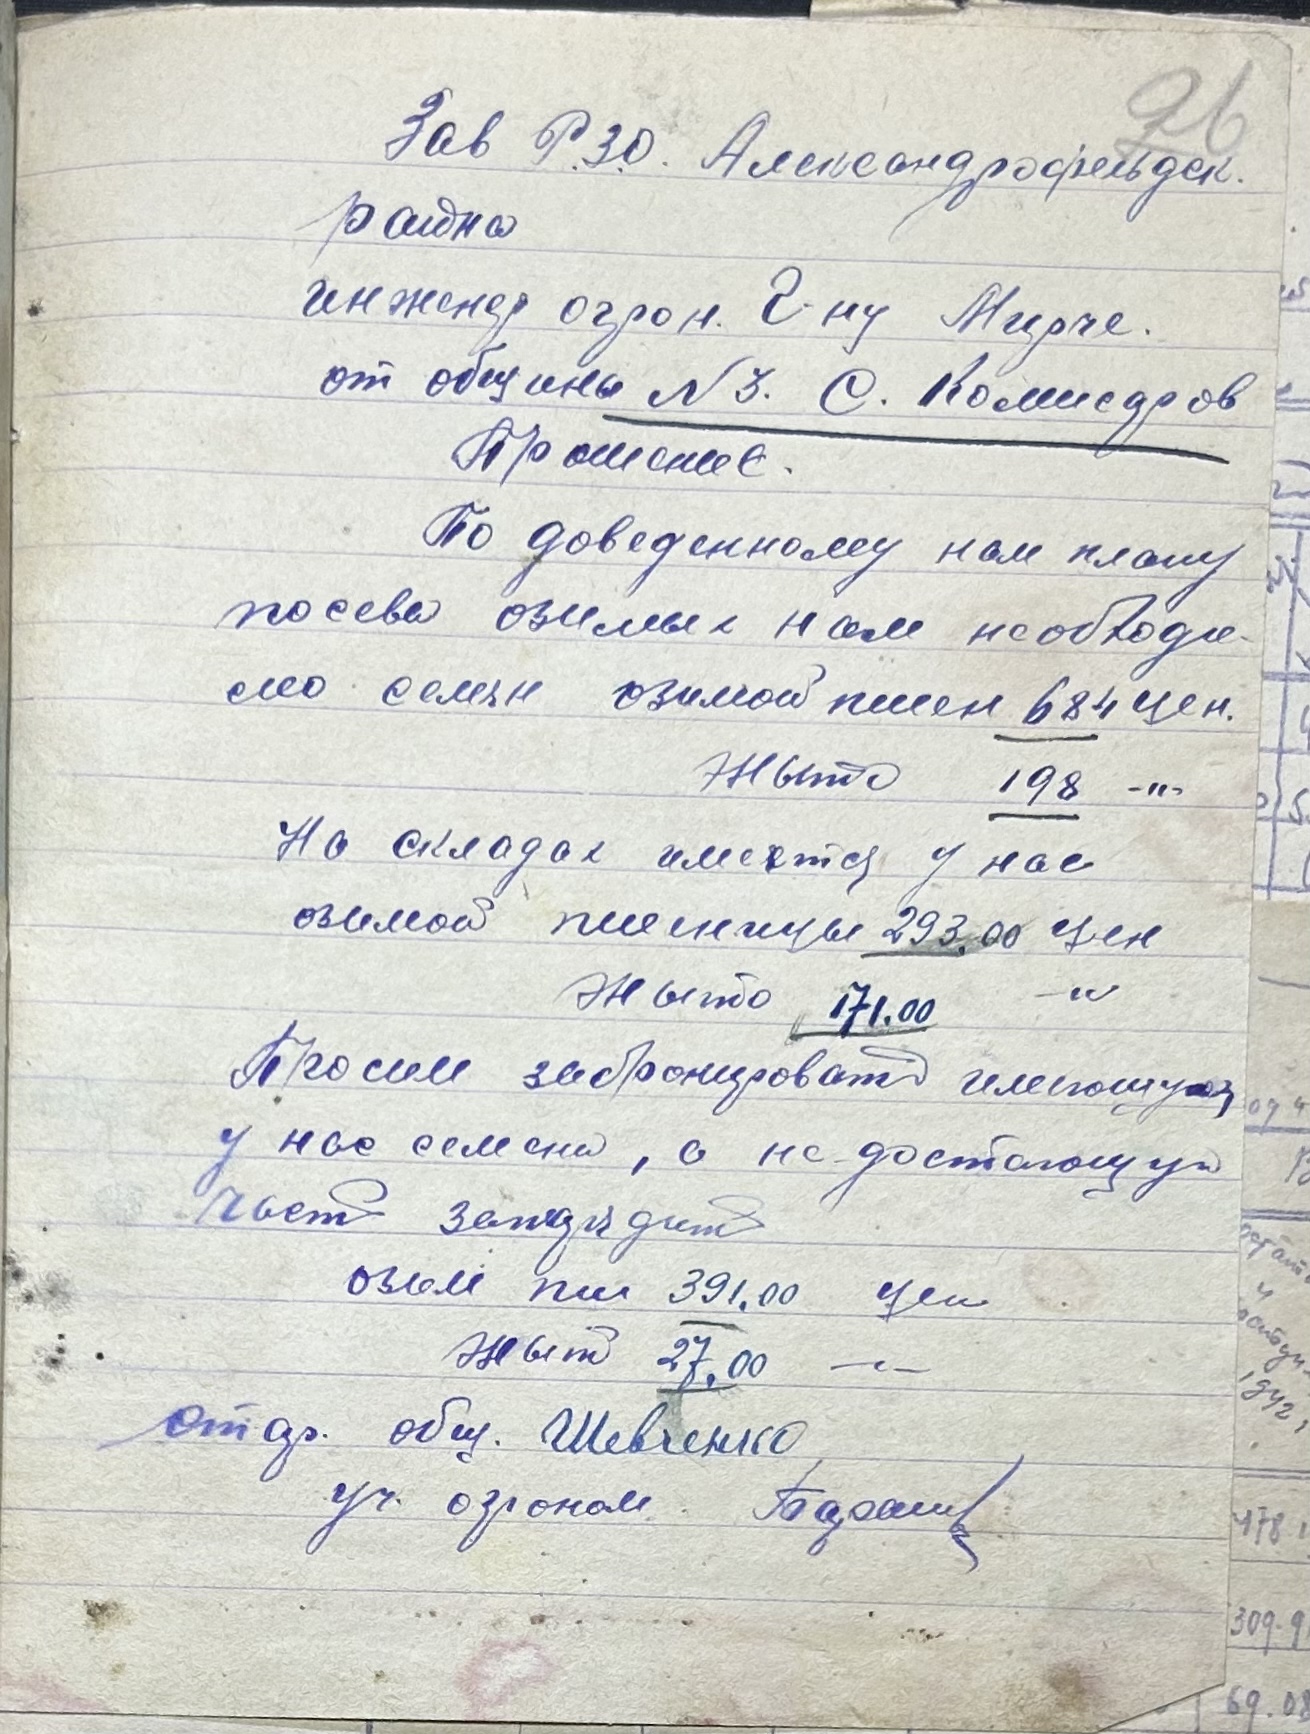 26
Зав Р.З.О. Александрофельдск.
раиона
инженер огрон. Г-ну Мирче.
от общины N 3. С. Комисаров
Прошение.
По доведенному нам плану
посева озимых нам необходи-
мо семян озимой пшен 684 цен.
жыто 198 -"-
На складах имеется у нас
озимой пшеницы 293.00 цен
жыто 171.00 -"
Просим забронировать имеющуюся
у нас семена, а не достающую
часть
озим пш 391.00 цен
жыта 27.00 -"-
общ. Шевченко
уч. огроном
178
309.9
69.08